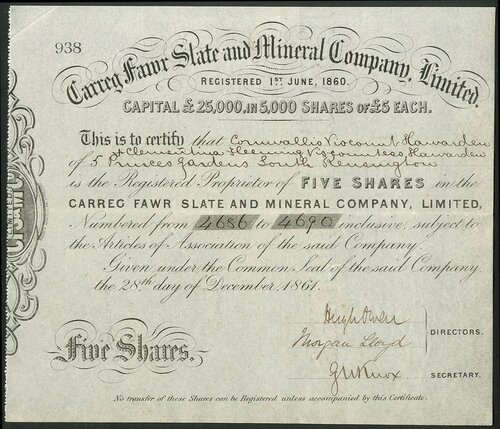 938
Carreg Fawr Slate and Mineral Company, Limited.
REGISTERED 1ST JUNE, 1860.
CAPITAL £25,000, IN 5,000 SHARES OF £5 EACH.
This is to certify that Cornwallis Viscount Hawarden
& Clementina Fleeming Viscountess Hawarden
of 5 Princes Gardens South Kensington
is the Registered Proprietor of FIVE SHARES in the
CARREG FAWR SLATE AND MINERAL COMPANY, LIMITED,
Numbered from 4686 to 4690 inclusive, subject to
the Articles of Association of the said Company.
Given under the Common Seal of the said Company,
the 28th day of December, 1861.
Hugh Owen
Morgan Lloyd
DIRECTORS.
Five Shares.
G W Knox
SECRETARY.
No transfer of these Shares can be Registered unless accompanied by this Certificate.